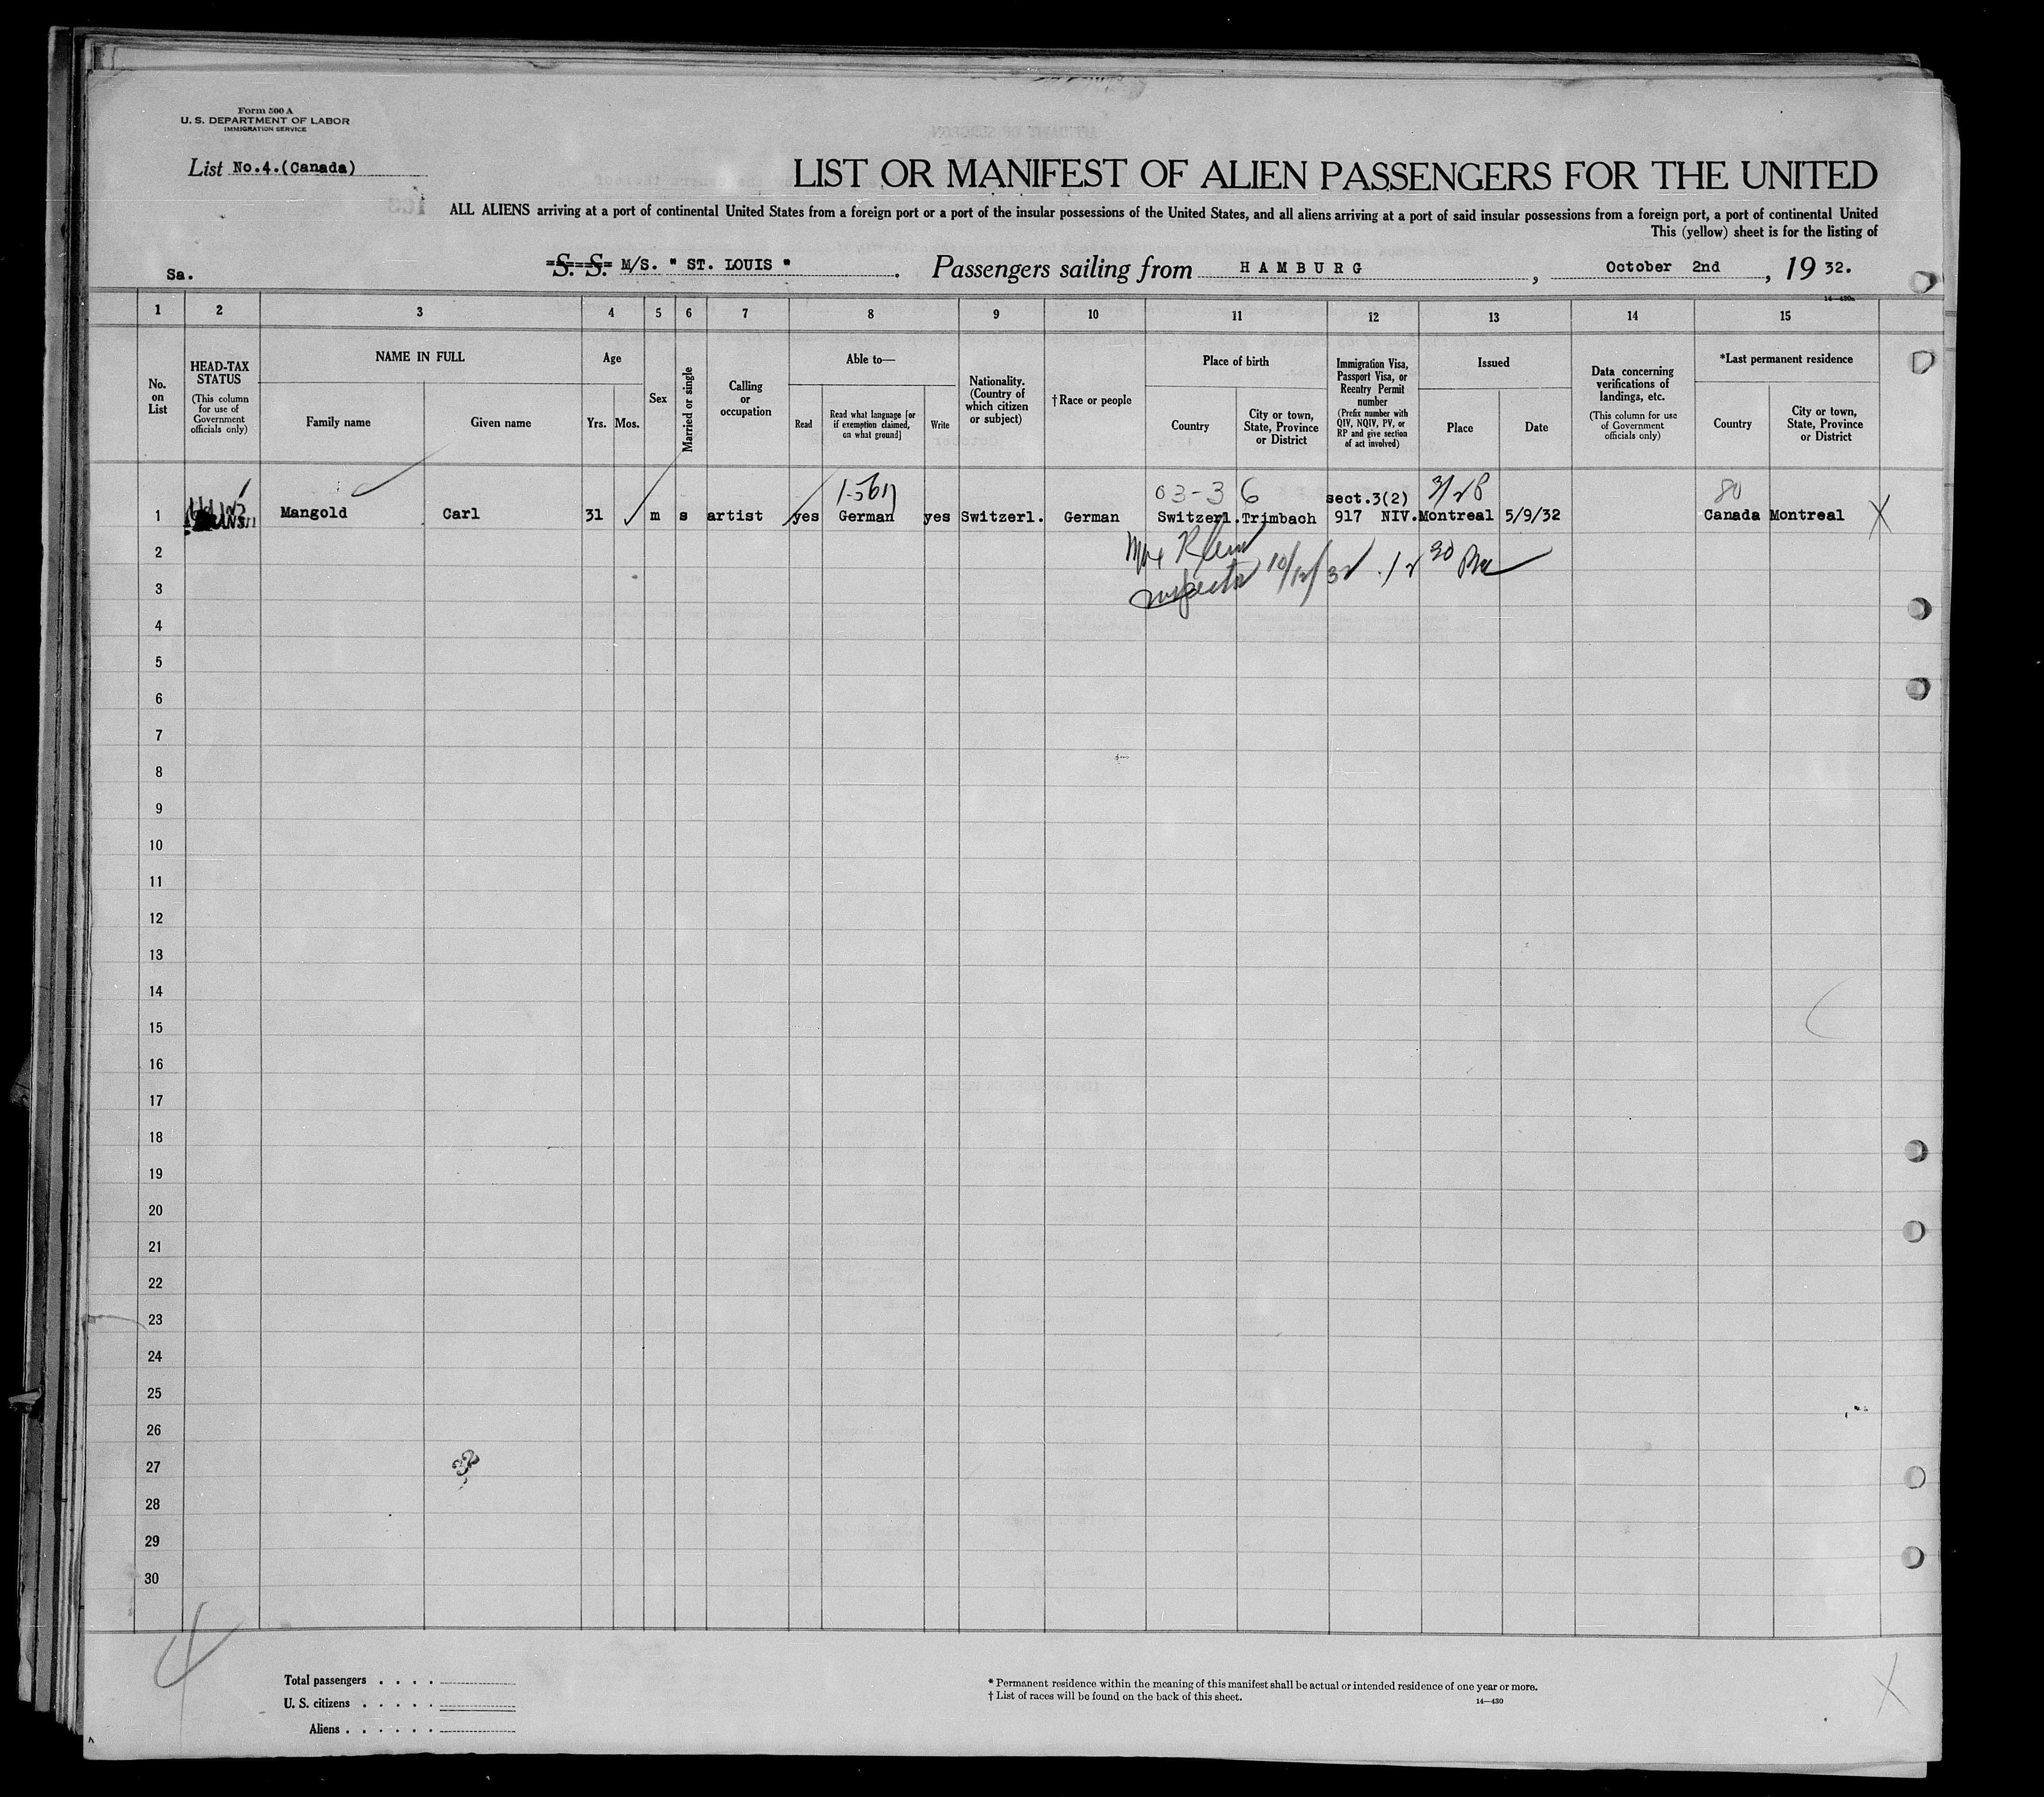 Form 500 A
U. S. DEPARTMENT OF LABOR
IMMIGRATION SERVICE
List No.4.(Canada)
LIST OR MANIFEST OF ALIEN PASSENGERS FOR THE UNITED
ALL ALIENS arriving at a port of continental United States from a foreign port or a port of the insular possessions of the United States, and all aliens arriving at a port of said insular possessions from a foreign port, a port of continental United
This (yellow) sheet is for the listing of
Sa.
S. S. M/S. " ST. LOUIS " . Passengers sailing from HAMBURG , October 2nd , 19 32.
14—430a
1 2 3 4 5 6 7 8 9 10 11 12 13 14 15
No. on List
HEAD-TAX STATUS
(This column for use of Government officials only)
NAME IN FULL
Family name
Given name
Age
Yrs. Mos.
Sex
Married or single
Calling or occupation
Able to—
Read
Read what language [or if exemption claimed, on what ground]
Write
Nationality. (Country of which citizen or subject)
†Race or people
Place of birth
Country
City or town, State, Province or District
Immigration Visa, Passport Visa, or Reentry Permit number
(Prefix number with QIV, NQIV, PV, or RP and give section of act involved)
Issued
Place
Date
Data concerning verifications of landings, etc.
(This column for use of Government officials only)
*Last permanent residence
Country
City or town, State, Province or District
03-3 6 sect.3(2) 3/28 80
1 Mangold Carl 31 m s artist yes German yes Switzerl. German Switzerl. Trimbach 917 NIV. Montreal 5/9/32 Canada Montreal X
Inspector 10/12/32 12 30 Pm
2
3
4
5
6
7
8
9
10
11
12
13
14
15
16
17
18
19
20
21
22
23
24
25
26
27
28
29
30
Total passengers . . . .
U. S. citizens . . . . .
Aliens . . . . . .
* Permanent residence within the meaning of this manifest shall be actual or intended residence of one year or more.
† List of races will be found on the back of this sheet.
14—430
X